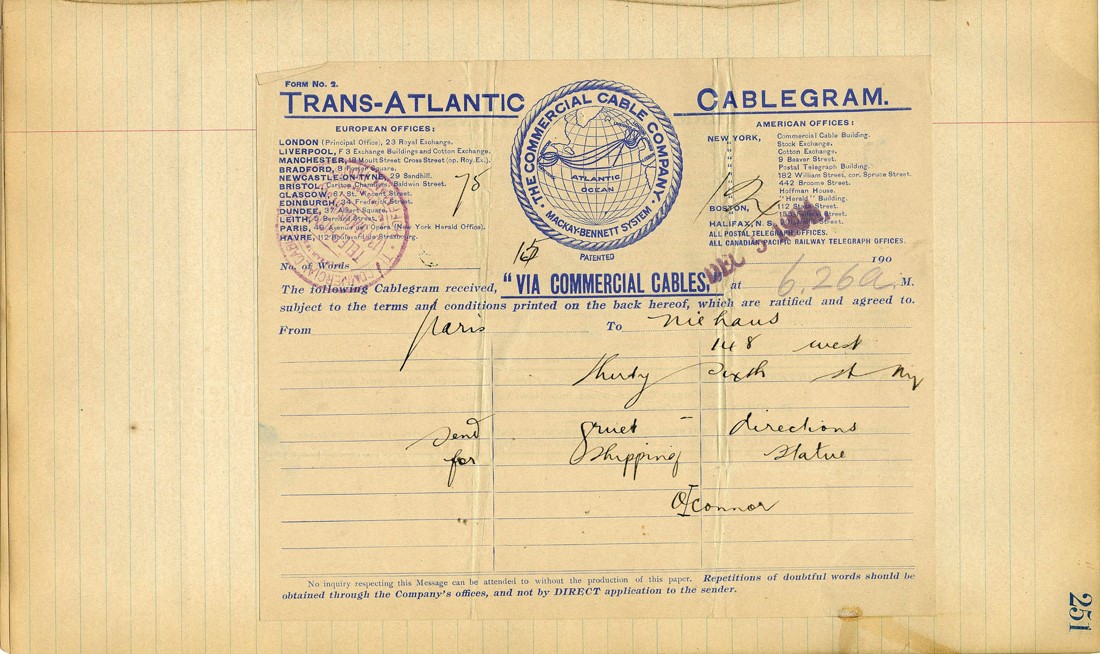 FORM No. 2.
TRANS-ATLANTIC CABLEGRAM.
THE COMMERCIAL CABLE COMPANY
ATLANTIC OCEAN
MACKAY-BENNETT SYSTEM
PATENTED
EUROPEAN OFFICES:
LONDON (Principal Office), 23 Royal Exchange.
LIVERPOOL, F 3 Exchange Buildings and Cotton Exchange.
MANCHESTER, Moult Street Cross Street (op. Roy. Ex.).
BRADFORD, Square.
NEWCASTLE-ON-TYNE, 29 Sandhill.
BRISTOL, Carlton Chambers, Baldwin Street.
GLASGOW, 67 St. Vincent Street.
EDINBURGH, 34 Frederick Street.
DUNDEE, 37 Albert Square.
LEITH,
PARIS, 49 Avenue de l'Opéra (New York Herald Office).
HAVRE, 112 Boulevard Strasbourg.
AMERICAN OFFICES:
NEW YORK, Commercial Cable Building.
Stock Exchange.
Cotton Exchange.
9 Beaver Street.
Postal Telegraph Building.
182 William Street, cor. Spruce Street.
442 Broome Street.
Hoffman House.
"Herald" Building.
BOSTON, 112 State Street.
HALIFAX, N. S. Street.
ALL POSTAL TELEGRAPH OFFICES.
ALL CANADIAN PACIFIC RAILWAY TELEGRAPH OFFICES.
75
15
DEC 3
No. of Words
190
The following Cablegram received, "VIA COMMERCIAL CABLES," at 6.26a M.
subject to the terms and conditions printed on the back hereof, which are ratified and agreed to.
From Paris To Niehaus
148 west
thirty sixth st Ny
Send gruet - directions
for shipping statue
O'Connor
No inquiry respecting this Message can be attended to without the production of this paper. Repetitions of doubtful words should be
obtained through the Company's offices, and not by DIRECT application to the sender.
251